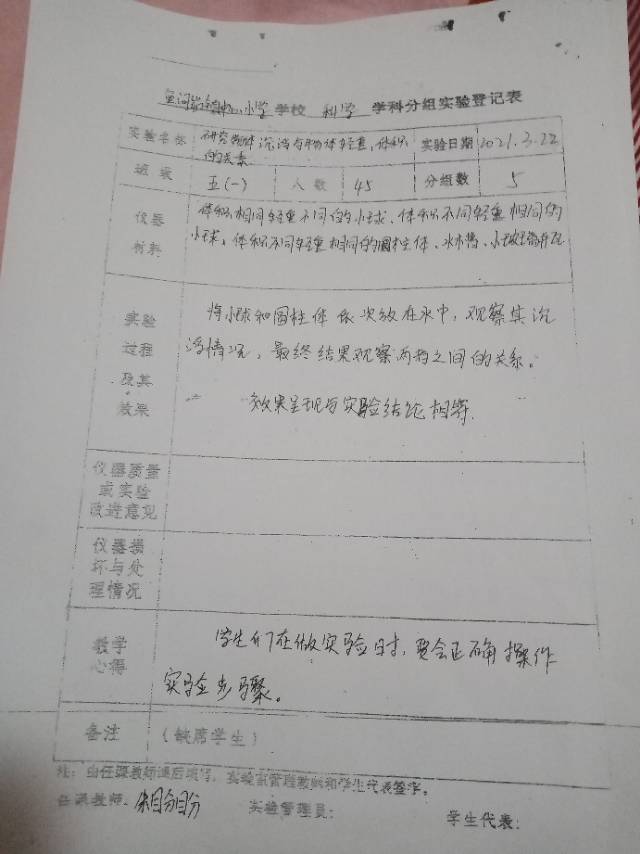 小学 学校 科学 学科分组实验登记表
实验名称 研究物体沉浮与物体轻重、体积 实验日期 2021.3.22
的关系
班级 五(一) 人数 45 分组数 5
仪器 体积相同轻重不同的小球、体积不同轻重相同的
材料 小球,体积不同轻重相同的圆柱体、水槽、
实验 将小球和圆柱体依次放在水中,观察其沉
过程 浮情况,最终结果观察两者之间的关系。
及其
效果 效果呈现与实验结论相等.
仪器质量
或实验
改进意见
仪器损
坏与处
理情况
教学 学生们在做实验时,要会正确操作
心得 实验步骤。
备注 (缺席学生)
注:由任课教师课后填写,实验室管理教师和学生代表签字。
任课教师: 实验管理员: 学生代表: